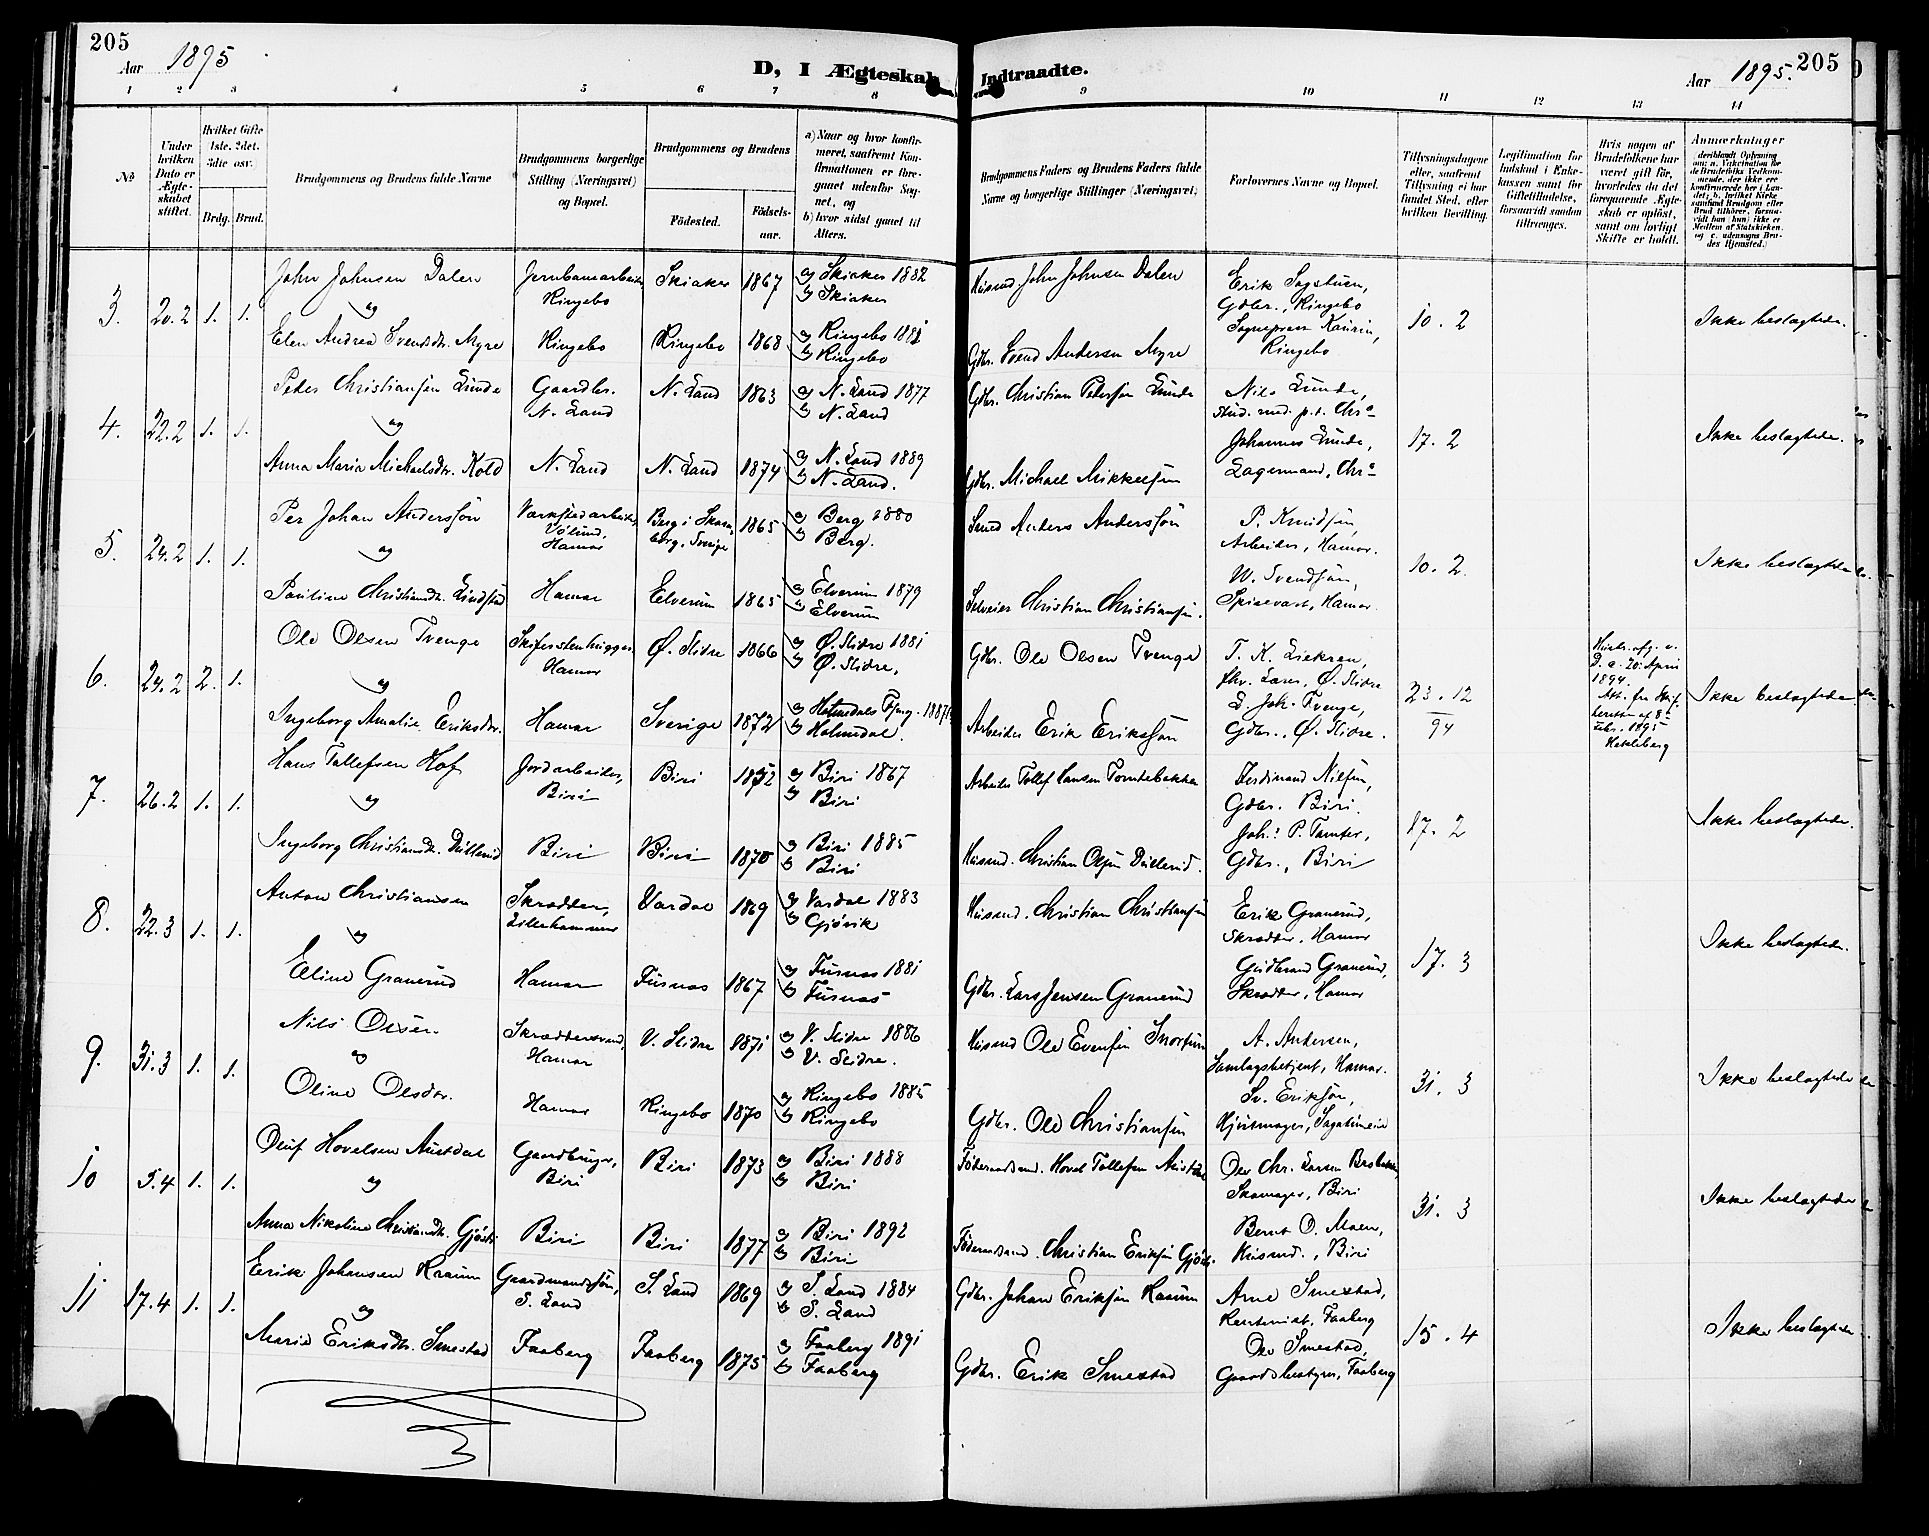 205
Aar 1895
D, I Ægteskab Indtraadte.
Aar 1895.
205
1 2 3 4 5 6 7 8 9 10 11 12 13 14
No
Under hvilken Dato er Ægteskabet stiftet.
Hvilket Gifte 1ste. 2det. 3die osv.
Brdg. Brud.
Brudgommens og Brudens fulde Navne
Brudgommens borgerlige Stilling (Næringsvei) og Bopæl.
Brudgommens og Brudens
Födested.
Födselsaar.
a) Naar og hvor konfirmeret, saafremt Konfirmationen er foregaaet udenfor Sognet, og
b) hvor sidst gaaet til Alters.
Brudgommens Faders og Brudens Faders fulde Navne og borgerlige Stillinger (Næringsvei)
Forlovernes Navne og Bopæl.
Tillysningsdagene eller, saafremt Tillysning ei har fundet Sted, efter hvilken Bevilling.
Legitimation for Indskud i Enkekassen samt for Giftetilladelse, forsaavidt saadan tiltrænges.
Hvis nogen af Brudefolkene har været gift før, hvorledes da det foregaaende Ægteskab er opløst, samt om lovligt Skifte er holdt.
Anmærkninger
3. 20.2 1. 1.
John Johnsen Dalen
Jernbanearbeider Ringebo
Skiaker 1867
a) Skiaker 1882
b) Skiaker
Husmd. John Johnsen Dalen
Erik Sagstuen,
Gdbr., Ringebo
10. 2
Ikke beslægtede.
og
Elen Andrea Svendsdr. Myre
Ringebo
Ringebo 1868
a) Ringebo 1881
b) Ringebo
Gdbr. Svend Andersen Myre
Sogneprest Kaurin,
Ringebo
4. 22.2 1. 1.
Peder Christiansen Lunde
Gaardbr. N. Land
N. Land 1863
a) N. Land 1877
b) N. Land
Gdbr. Christian Pedersen Lunde
Nils Lunde,
stud. med. p.t. Chra
17. 2
Ikke beslægtede.
og
Anna Maria Michaelsdr. Kold
N. Land
N. Land 1874
a) N. Land 1889
b) N. Land.
Gdbr. Michael Mikkelsen
Johannes Lunde,
Lagermand, Chra
5. 24.2 1. 1.
Per Johan Andersson
Værkstedarbeider, Hamar
Berg i Skaraborg, Sverige 1865
a) Berg 1880
b) Berg.
Smed Anders Andersson
P. Knudsen,
Arbeider, Hamar.
10. 2.
Ikke beslægtede
og
Pauline Christiansdr. Lindstad
Hamar
Elverum 1865
a) Elverum 1879
b) Elverum
Selveier Christian Christiansen.
W. Svendsen,
Spisevert, Hamar.
6. 24.2 2. 1.
Ole Olsen Tvenge
Skiferstenhugger Hamar
Ø. Slidre 1866
a) Ø. Slidre 1881
b) Ø. Slidre,
Gdbr. Ole Olsen Tvenge
T. K. Liekren,
Ø. Slidre
23. 12
94
20. April
1894.
1895
Ikke beslægtede
og
Ingeborg Amalie Eriksdr.
Hamar
Sverige 1872
a) Holmedals 1887
b) Holmedal.
Arbeider Erik Eriksson
Joh. Tvenge,
Gdbr., Ø. Slidre.
7. 26.2 1. 1.
Hans Tollefsen Hof
Jordarbeider, Biri
Biri 1852
a) Biri 1867
b) Biri
Arbeider Tollef Hansen Tomtebakken
Ferdinand Nilsen,
Gdbr. Biri.
17. 2
Ikke beslægtede.
og
Ingeborg Christiansdr. Dullerud
Biri
Biri 1870
a) Biri 1885
b) Biri
Husmd. Christian Olsen Dullerud.
Joh. P. Tomter,
Gdbr., Biri
8. 22.3 1. 1.
Anton Christiansen
Skrædder, Lillehammer
Vardal 1869
a) Vardal 1883
b) Gjövik
Husmd. Christian Christiansen
Erik Granerud,
Skrædder, Hamar
17. 3
Ikke beslægtede.
og
Eline Granerud
Hamar
Furnes 1867
a) Furnes 1881
b) Furnes
Gdbr. Lars Jensen Granerud
Gudbrand Granerud,
Skrædder, Hamar
9. 31.3 1. 1.
Nils Olsen
Skræddersvend, Hamar
V. Slidre 1871
a) V. Slidre 1886
b) V. Slidre.
Husmd Ole Evensen
A. Andersen,
Samlagsbetjent, Hamar.
31. 3
Ikke beslægtede
og
Oline Olsdr.
Hamar
Ringebo 1870
a) Ringebo 1885
b) Ringebo
Gdbr. Ole Christiansen
Sv. Eriksen,
Hjulmager,
10 5.4 1. 1.
Oluf Hovelsen Austdal
Gaardbruger, Biri
Biri 1873
a) Biri 1888
b) Biri
Föderaadsmd. Hovel Tollefsen Austdal
Ole Chr. Larsen
Skomager, Biri
31. 3
Ikke beslægtede
og
Anna Nikoline Christiansdr. Gjösti
Biri
Biri 1877
a) Biri 1892
b) Biri
Föderaadsmd. Christian Eriksen
Bernt O. Moen,
Husmd., Biri
11 17.4 1. 1.
Erik Johansen Raaum
Gaardmandssön, S. Land
S. Land 1869
a) S. Land 1884
b) S. Land
Gdbr. Johan Eriksen Raaum
Arne Smestad,
Rentenist, Faaberg
15. 4
Ikke beslægtede
og
Marie Eriksdtr. Smestad
Faaberg
Faaberg 1875
a) Faaberg 1891
b) Faaberg
Gdbr. Erik Smestad
Ole Smestad,
Gaardsbestyrer, Faaberg